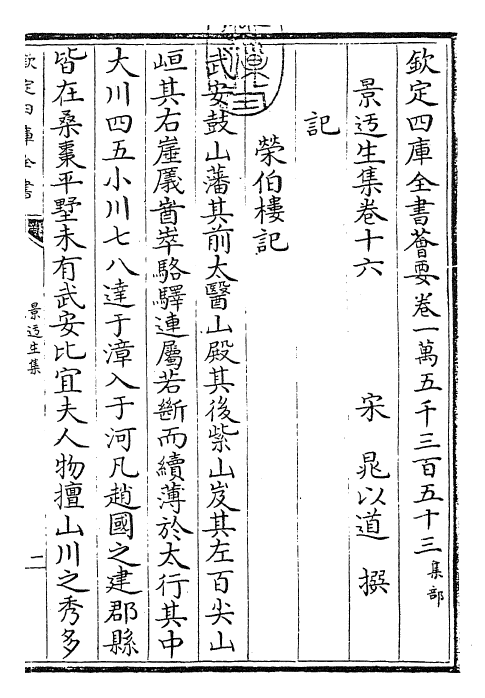 欽定四庫全書薈要卷一萬五千三百五十三集部
景迃生集卷十六 宋 晁以道 撰
記
榮伯樓記
武安鼓山藩其前太醫山殿其後紫山岌其左百尖山
峘其右崖厲崷崒駱驛連屬若斷而續薄於太行其中
大川四五小川七八達于漳入于河凡趙國之建郡縣
皆在桑棗平墅未有武安比宜夫人物擅山川之秀多
欽定四庫全書
景迃生集